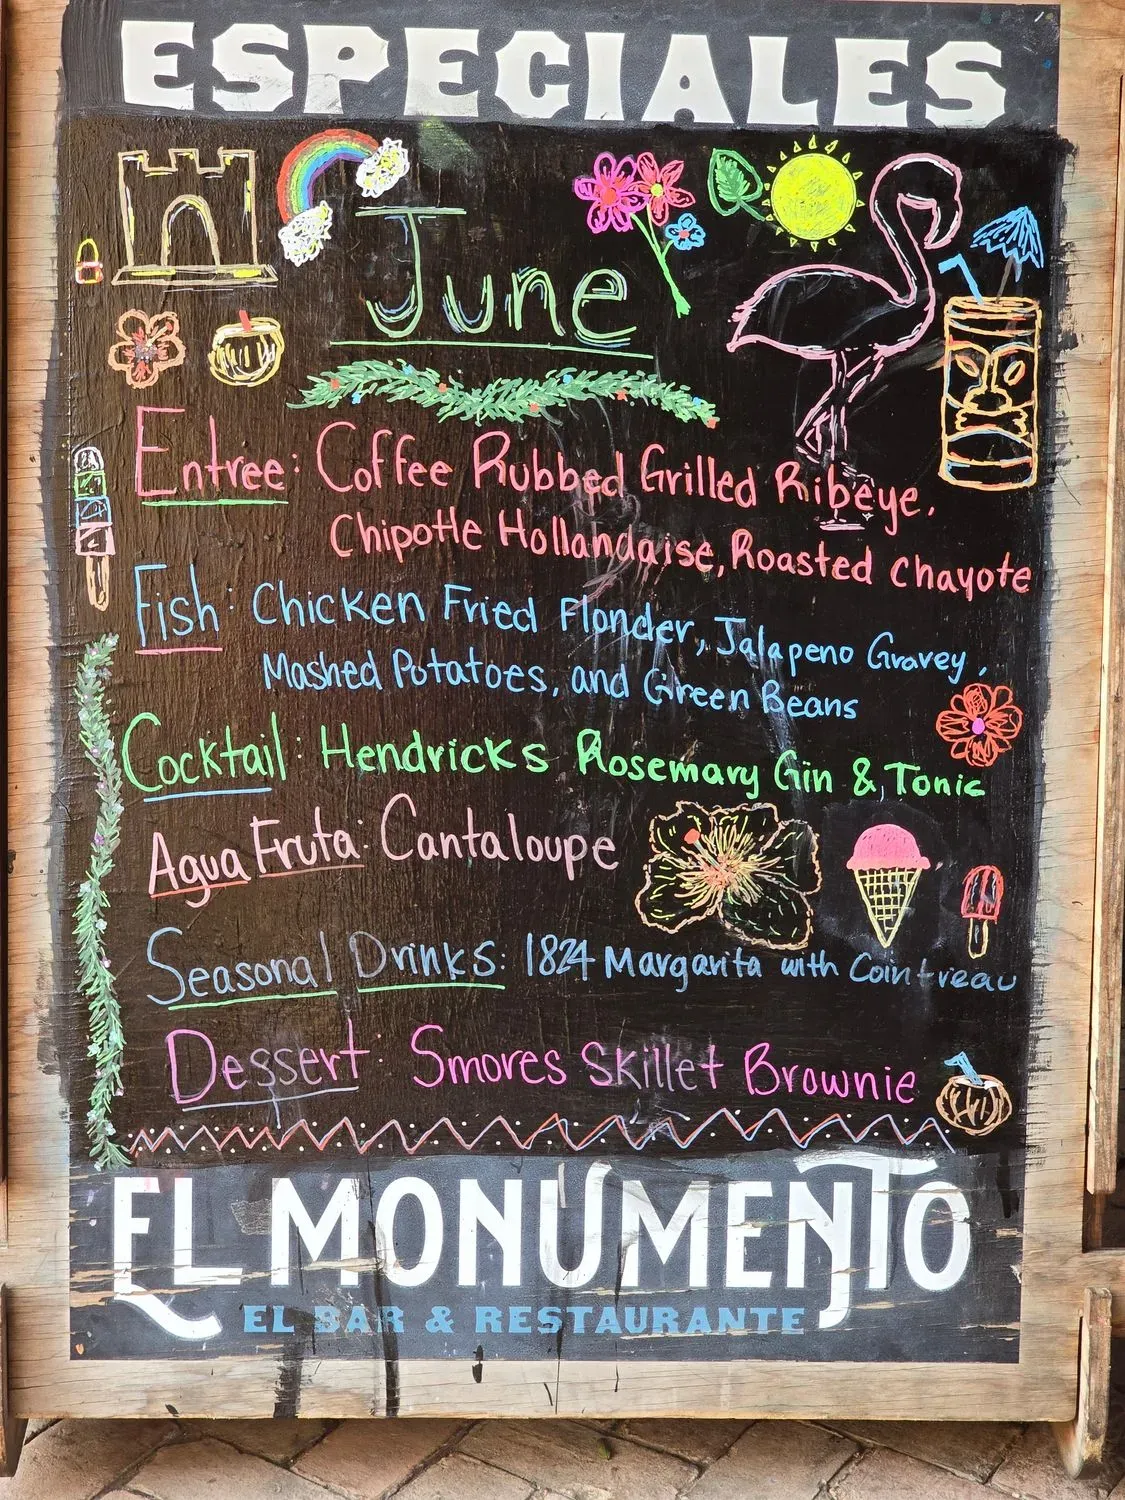 ESPECIALES
June
Entree: Coffee Rubbed Grilled Ribeye,
Chipotle Hollandaise, Roasted Chayote
Fish: Chicken Fried Flonder, Jalapeno Gravey,
Mashed Potatoes, and Green Beans
Cocktail: Hendricks Rosemary Gin & Tonic
Agua Fruta: Cantaloupe
Seasonal Drinks: 1824 Margarita with Cointreau
Dessert: Smores Skillet Brownie
EL MONUMENTO
EL BAR & RESTAURANTE